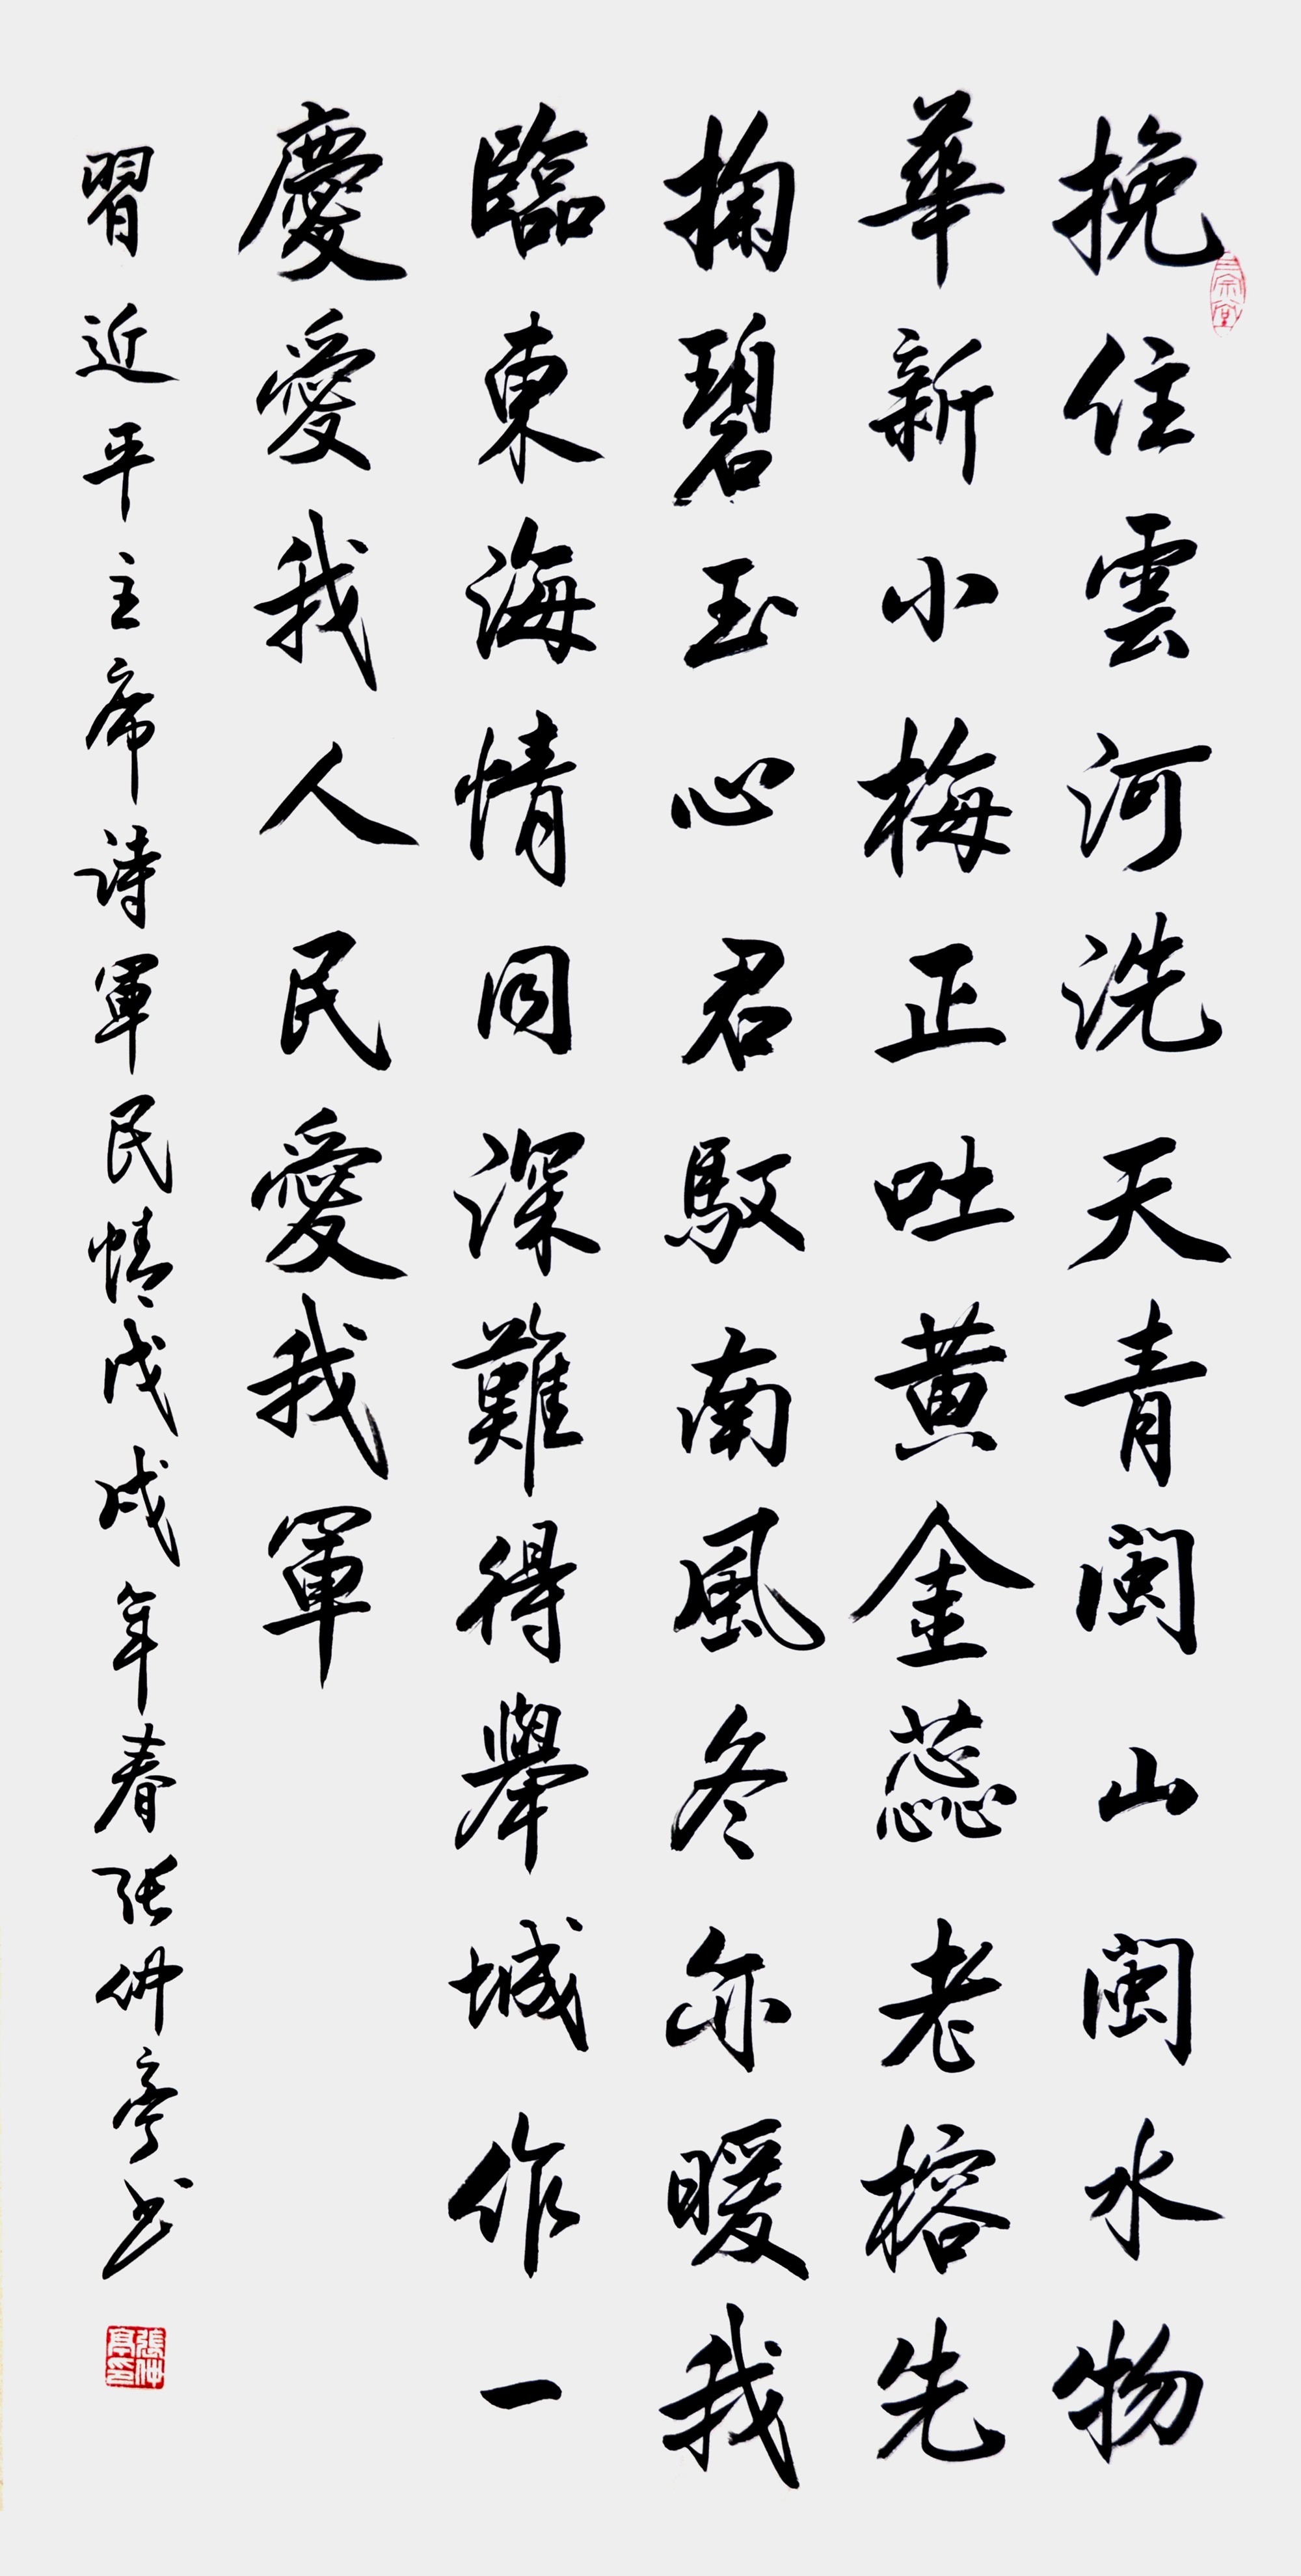 挽住雲河洗天青閩山閩水物
華新小梅正吐黄金蕊老榕先
掬碧玉心君馭南風冬亦暖我
臨東海情同深難得舉城作一
慶愛我人民愛我軍
習近平主席詩軍民情戊戌年春張仲亭書
張仲亭印